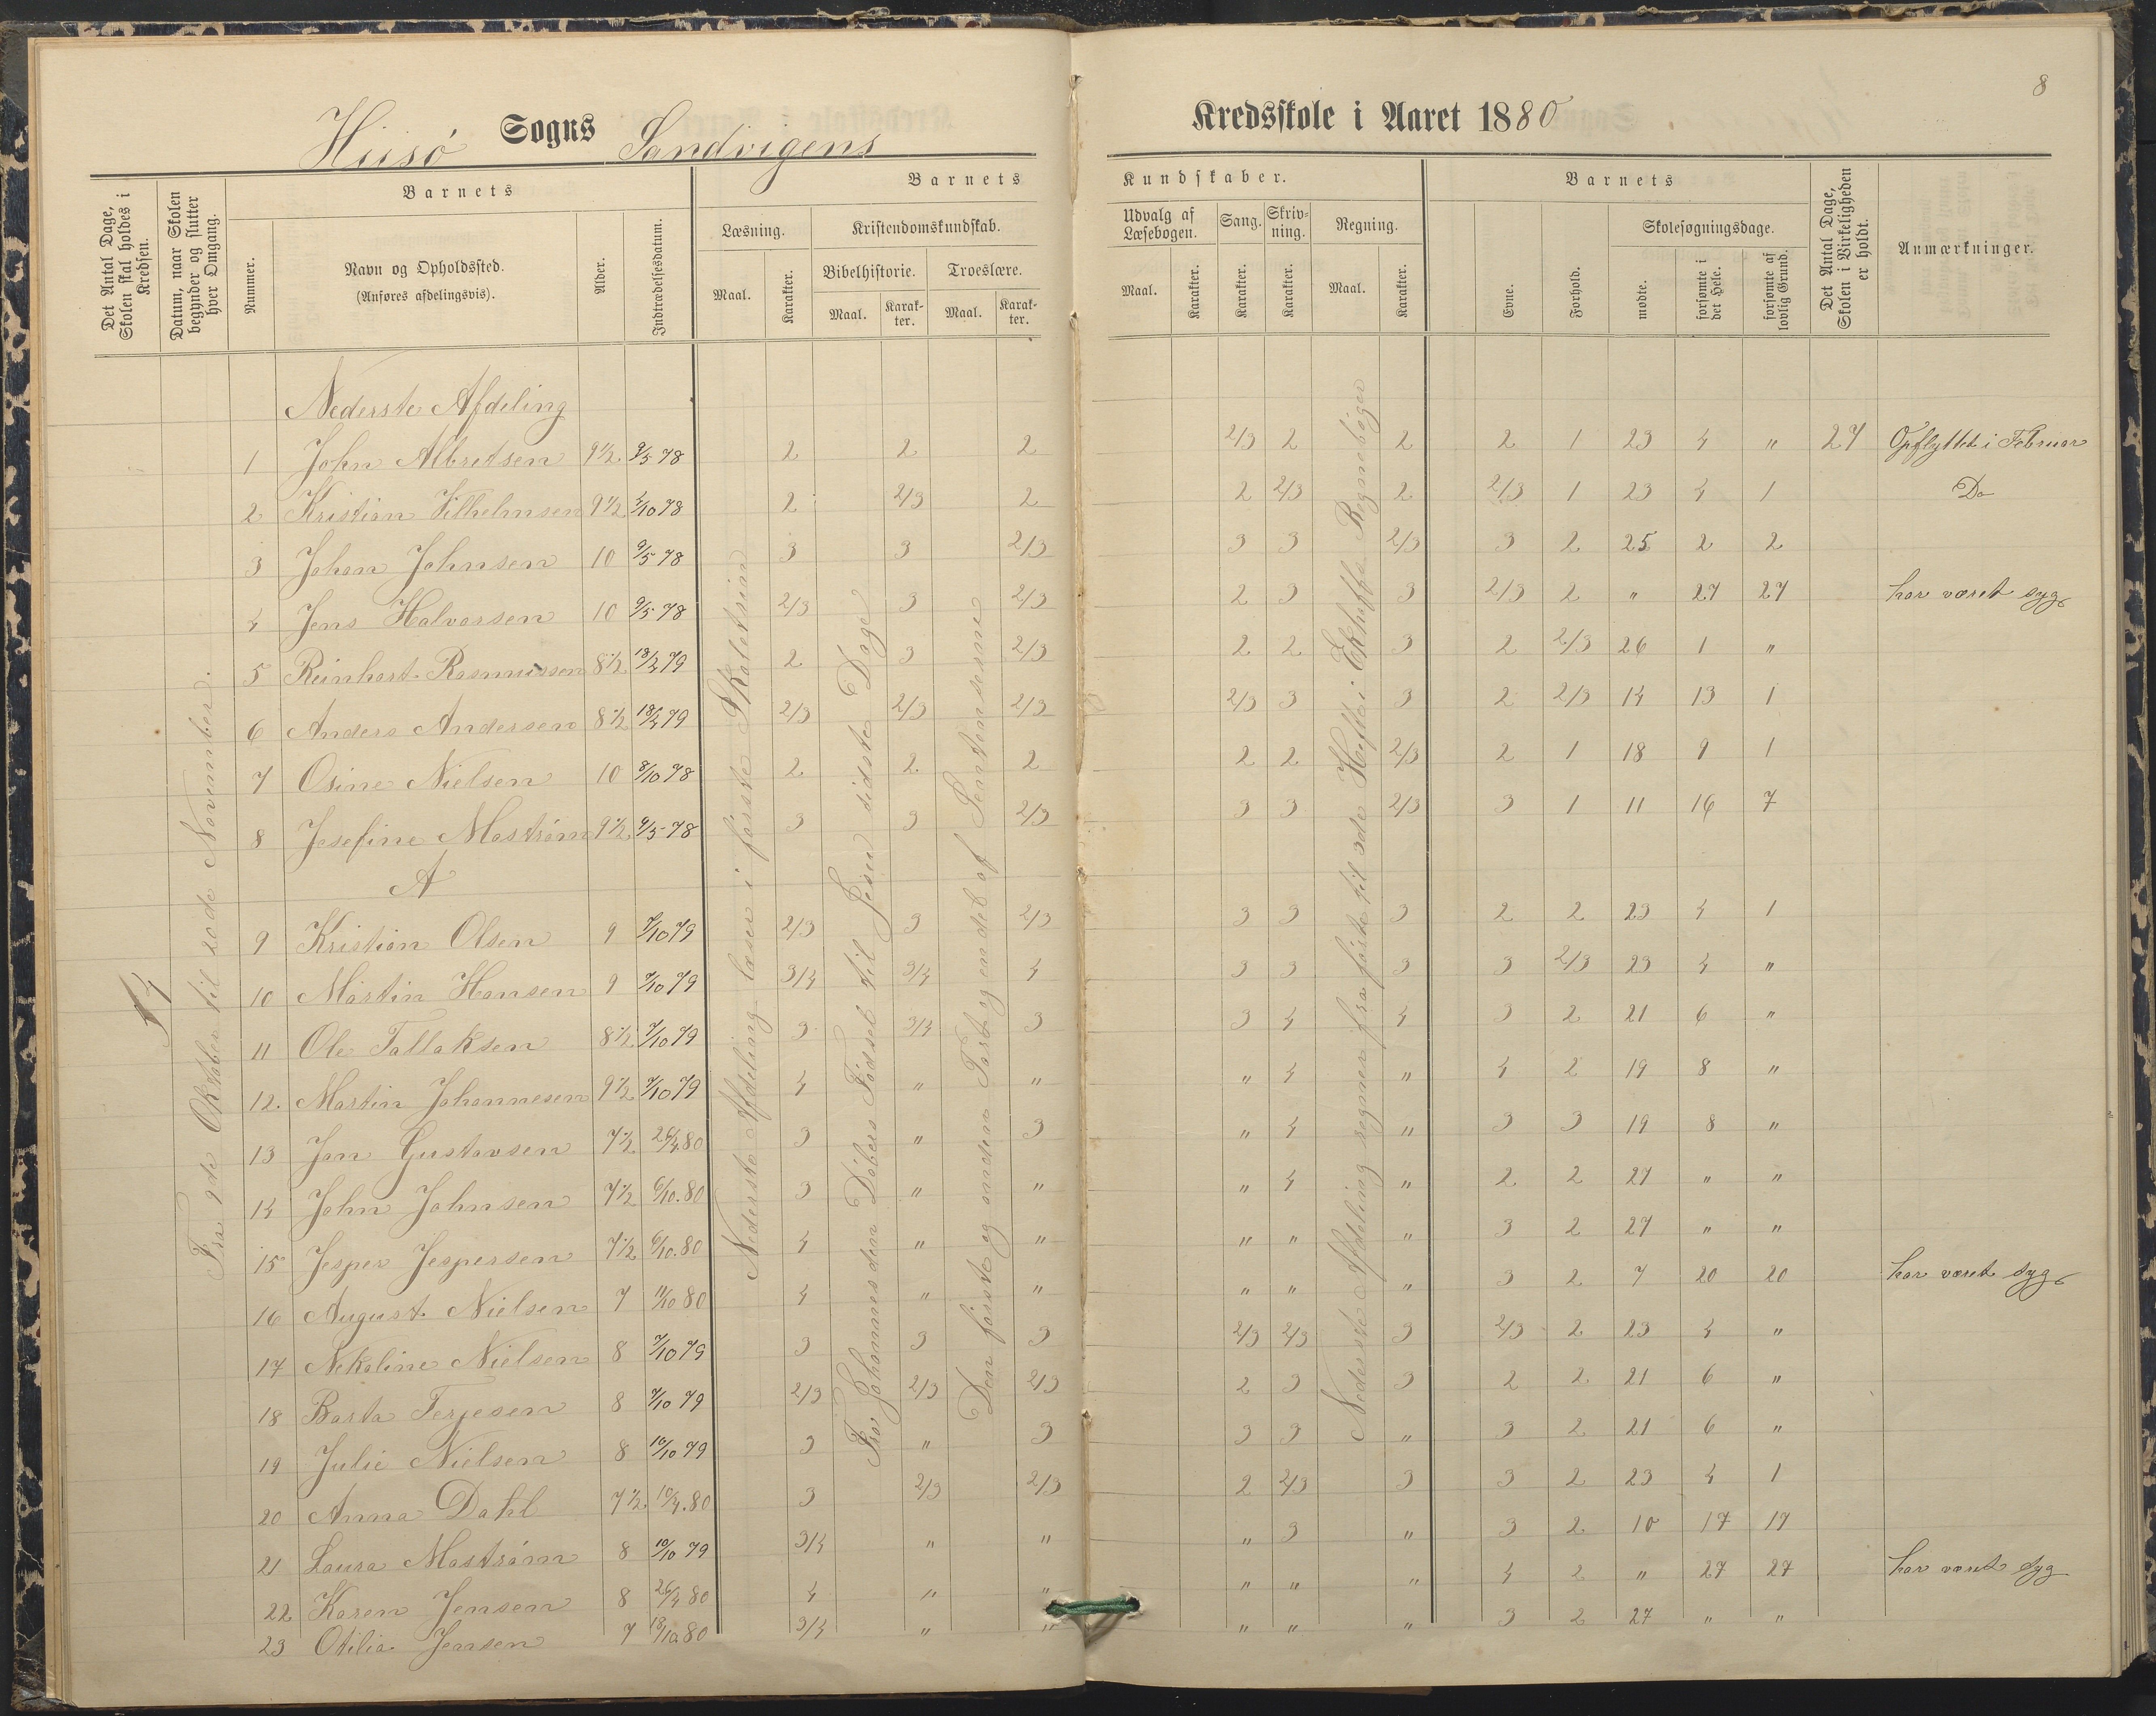 8
Hiisö Sogns Sandvigens Kredsskole i Aaret 1880
Det Antal Dage, Skolen skal holdes i Kredsen.
Datum, naar Skolen begynder og slutter hver Omgang.
Barnets
Nummer.
Navn og Opholdssted.
(Anføres afdelingsvis).
Alder.
Indtrædelsesdatum.
Barnets Kundskaber.
Læsning.
Maal. Karakter.
Kristendomskundskab.
Bibelhistorie. Troeslære.
Maal. Karakter. Maal. Karakter.
Udvalg af Læsebogen.
Maal. Karakter.
Sang. Karakter.
Skrivning. Karakter.
Regning.
Maal. Karakter.
Barnets
Evne. Forhold.
Skolesøgningsdage.
mødte. forsømte i det Hele. forsømte af lovlig Grund.
Det Antal Dage, Skolen i Virkeligheden er holdt.
Anmærkninger.
Fra 2de Oktober til 20de November.
Nederste Afdeling læser i første Skoletrin
Fra Johannes den Døbers Fødsel til Jesu sidste Dage
Den første og anden Part og endel af Sentenserne
Nederste Afdeling regner fra første til 3die Hefte i Ekhoffs Regnebøger
Nederste Afdeling
1 John Albretsen 9 1/2 9/5 78 2 2 2 2/3 2 2 2 1 23 4 " 27 Opflyttet i Februar
2 Kristian Vilhelmsen 9 1/2 4/10 78 2 2/3 2 2 2/3 2 2/3 1 23 4 1 Do
3 Johan Johnsen 10 9/5 78 3 3 2/3 3 3 2/3 3 2 25 2 2
4 Jens Halvorsen 10 9/5 78 2/3 3 2/3 2 3 3 2/3 2 " 27 27 har været syg
5 Reinhart Rasmussen 8 1/2 18/2 79 2 3 2/3 2 2 3 2 2/3 26 1 "
6 Anders Andersen 8 1/2 18/2 79 2/3 2/3 2/3 2/3 3 3 2 2/3 14 13 1
7 Osine Nielsen 10 8/10 78 2 2 2 2 2 2/3 2 1 18 9 1
8 Josefine Mostrøm 9 1/2 9/5 78 3 3 2/3 3 3 2/3 3 1 11 16 7
A
9 Kristian Olsen 9 7/10 79 2/3 3 2/3 3 3 3 2 2 23 4 1
10 Martin Hansen 9 7/10 79 3/4 3/4 4 3 3 3 3 2/3 23 4 "
11 Ole Tallaksen 8 1/2 7/10 79 3 3/4 3 3 4 4 3 2 21 6 "
12. Martin Johannesen 9 1/2 7/10 79 4 " " " 4 " 4 2 19 8 "
13 Jan Gustavsen 7 1/2 26/4 80 3 " 3 " 4 " 3 3 19 8 "
14 John Johnsen 7 1/2 6/10. 80 3 " " " 4 " 2 2 27 " "
15 Jesper Jespersen 7 1/2 6/10. 80 4 " " " " " 3 2 27 " "
16 August Nielsen 7 11/10 80 4 " " " " " 3 2 7 20 20 har været syg
17 Nikoline Nielsen 8 7/10 79 3 3 3 2/3 2/3 3 2/3 2 23 4 "
18 Barta Terjesen 8 7/10 79 2/3 2/3 2/3 2 3 3 2 2 21 6 "
19 Julie Nielsen 8 10/10 79 3 " 3 3 3 " 3 2 21 6 "
20 Anna Dahl 7 1/2 10/4. 80 3 2/3 2/3 2 2/3 3 3 2 23 4 1
21 Laura Mostrøm 8 10/10 79 3/4 " " " 3 " 3 2 10 17 17
22 Karen Jensen 8 26/4 80 4 " " " " " 4 2 " 27 27 har været syg
23 Otilia Jensen 7 18/10 80 3/4 " " " " " 3 2 27 " "